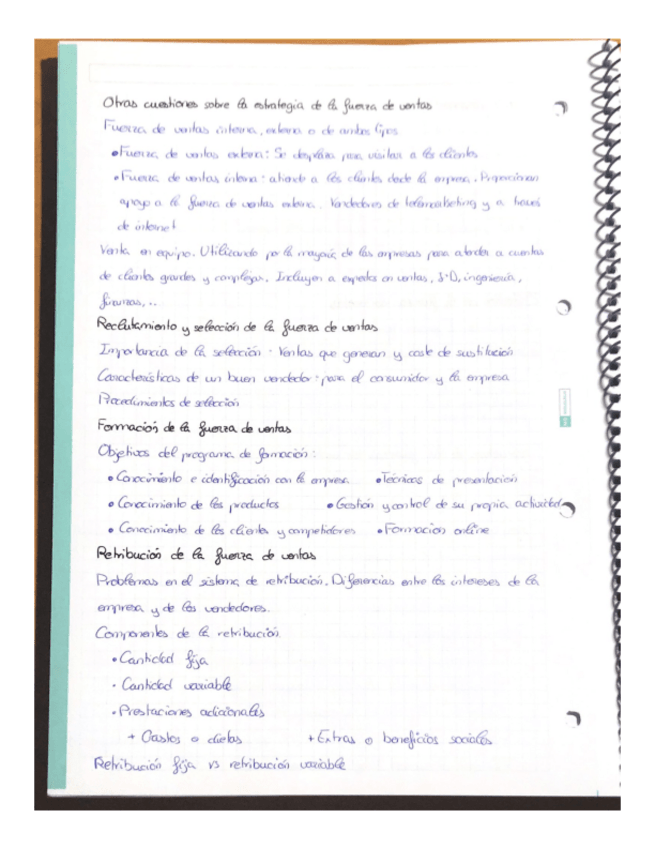 Otras cuestiones sobre la estrategia de la fuerza de ventas
Fuerza de ventas interna, externa o de ambos tipos
• Fuerza de ventas externa: Se desplaza para visitar a los clientes
• Fuerza de ventas interna: atiende a los clientes desde la empresa. Proporcionan
apoyo a la fuerza de ventas externa. Vendedores de telemarketing y a través
de internet
Venta en equipo. Utilizando por la mayoría de las empresas para atender a cuentas
de clientes grandes y complejas. Incluyen a expertos en ventas, I+D, ingeniería,
finanzas, ...
Reclutamiento y selección de la fuerza de ventas
Importancia de la selección: Ventas que generan y coste de sustitución
Características de un buen vendedor: para el consumidor y la empresa
Procedimientos de selección
Formación de la fuerza de ventas
Objetivos del programa de formación:
• Conocimiento e identificación con la empresa • Técnicas de presentación
• Conocimiento de los productos • Gestión y control de su propia actividad
• Conocimiento de los clientes y competidores • Formación online
Retribución de la fuerza de ventas
Problemas en el sistema de retribución. Diferencias entre los intereses de la
empresa y de los vendedores.
Componentes de la retribución
• Cantidad fija
• Cantidad variable
• Prestaciones adicionales
+ Gastos o dietas + Extras o beneficios sociales
Retribución fija vs retribución variable